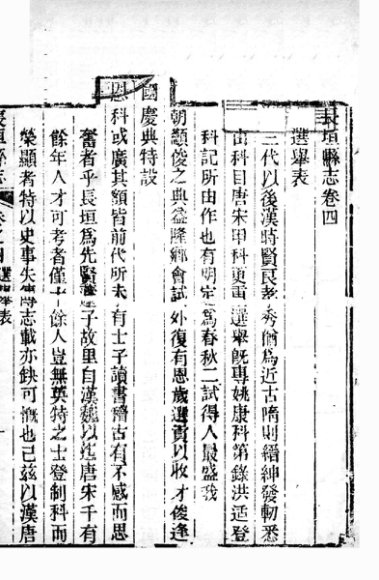 長垣縣志卷四
選舉表
三代以後漢時賢良孝秀猶爲近古隋則縉紳發軔悉
由科目唐宋甲科更重選舉旣專姚康科第錄洪适登
科記所由作也有明定爲春秋二試得人最盛我
朝顯俊之典益隆鄉會試外復有恩歲選貢以收才俊逢
國慶典特設
恩科或廣其額皆前代所未有士子讀書稽古有不感而思
奮者乎長垣爲先賢蘧子故里自漢魏以迄唐宋千有
餘年人才可考者僅十餘人豈無英特之士登制科而
榮顯者特以史事失傳志載亦缺可慨也已茲以漢唐
長垣縣志 卷之四 選舉表 一